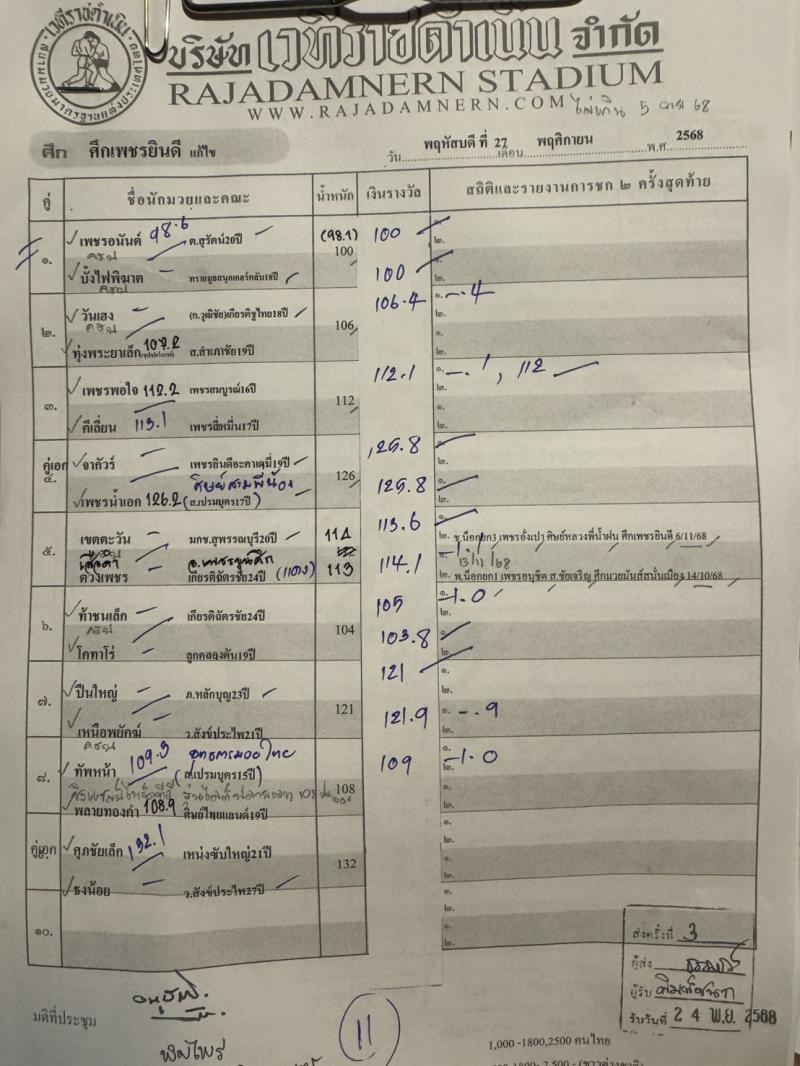 บริษัท เวทีราชดำเนิน จำกัด
RAJADAMNERN STADIUM
WWW.RAJADAMNERN.COM
ไม่เกิน 5 68
ศึก ศึกเพชรยินดี แก้ไข
วัน พฤหัสบดี ที่ 27 เดือน พฤศิกายน พ.ศ 2568
คู่ ชื่อนักมวยและคณะ น้ำหนัก เงินรางวัล สถิติและรายงานการชก ๒ ครั้งสุดท้าย
๑. เพชรอนันต์ 98.6 ต.สุรัตน์20ปี (98.1) 100 100 ๑. ๒.
บั้งไฟพิฆาต ทรายมูลสนุกเกอร์คลับ18ปี 100 ๑. ๒.
๒. วันเฮง (ก.วุฒิชัย)เกียรติชูไทย18ปี 106 106.4 ๑. -.4 ๒.
ทุ่งพระยาเล็ก 107.2 ส.สำเภาชัย19ปี ๑. ๒.
๓. เพชรพอใจ 112.2 เพชรสมบูรณ์16ปี 112 112.1 ๑. -.1, 112 ๒.
คีเลี่ยน 113.1 เพชรสี่หมื่น17ปี ๑. ๒.
คู่เอก ๔. จากัวร์ เพชรยินดีอะคาเดมี่19ปี 126 125.8 ๑. ๒.
ศิษย์สามพี่น้อง
เพชรน้ำเอก 126.2 (ส.เปรมบุตร17ปี) 125.8 ๑. ๒.
๕. เขตตะวัน มกช.สุพรรณบุรี20ปี 114 113.6 ๑. ๒. ช.น็อกยก3 เพชรอั่งเปา ศิษย์หลวงพี่น้ำฝน ศึกเพชรยินดี 6/11/68
13/11/68
ดวงเพชร เกียรติฉัตรชัย24ปี (แดง) 113 114.1 ๒. พ.น็อกยก1 เพชรอนุชิต ส.ชัยเจริญ ศึกมวยมันส์สนั่นเมือง 14/10/68
๖. ท้าชนเล็ก เกียรติฉัตรชัย24ปี 104 105 ๑. -1.0 ๒.
โคทาโร่ ลูกคลองตัน19ปี 103.8 ๑. ๒.
๗. ปืนใหญ่ ภ.หลักบุญ23ปี 121 121 ๑. ๒.
เหนือพยัคฆ์ ว.สังข์ประไพ21ปี 121.9 ๑. -.9 ๒.
๘. ทัพหน้า 109.9 (ส.เปรมบุตร15ปี) 108 109 ๑. ๒. -1.0
พลายทองคำ 108.9 ศิษย์ไทยแลนด์19ปี ๑. ๒.
คู่เอก ๙. ศุภชัยเล็ก 132.1 เหน่งซับใหญ่21ปี 132 ๑. ๒.
ธงน้อย ว.สังข์ประไพ27ปี ๑. ๒.
๑๐. ๑. ๒.
ส่งครั้งที่ 3
ผู้ส่ง
ผู้รับ
รับวันที่ 24 พ.ย. 2568
มติที่ประชุม
พิมไพร
11
1,000 -1800,2500 คนไทย